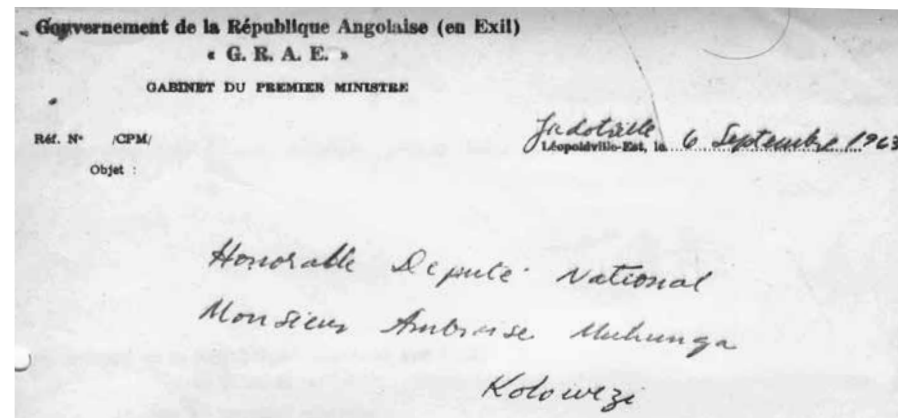 Gouvernement de la République Angolaise (en Exil)
« G. R. A. E. »
GABINET DU PREMIER MINISTRE
Jadotville
Réf. N° /CPM/
Léopoldville-Est, le 6 Septembre 1963
Objet :
Honorable Deputé National
Monsieur Ambroise Muhunga
Kolowezi